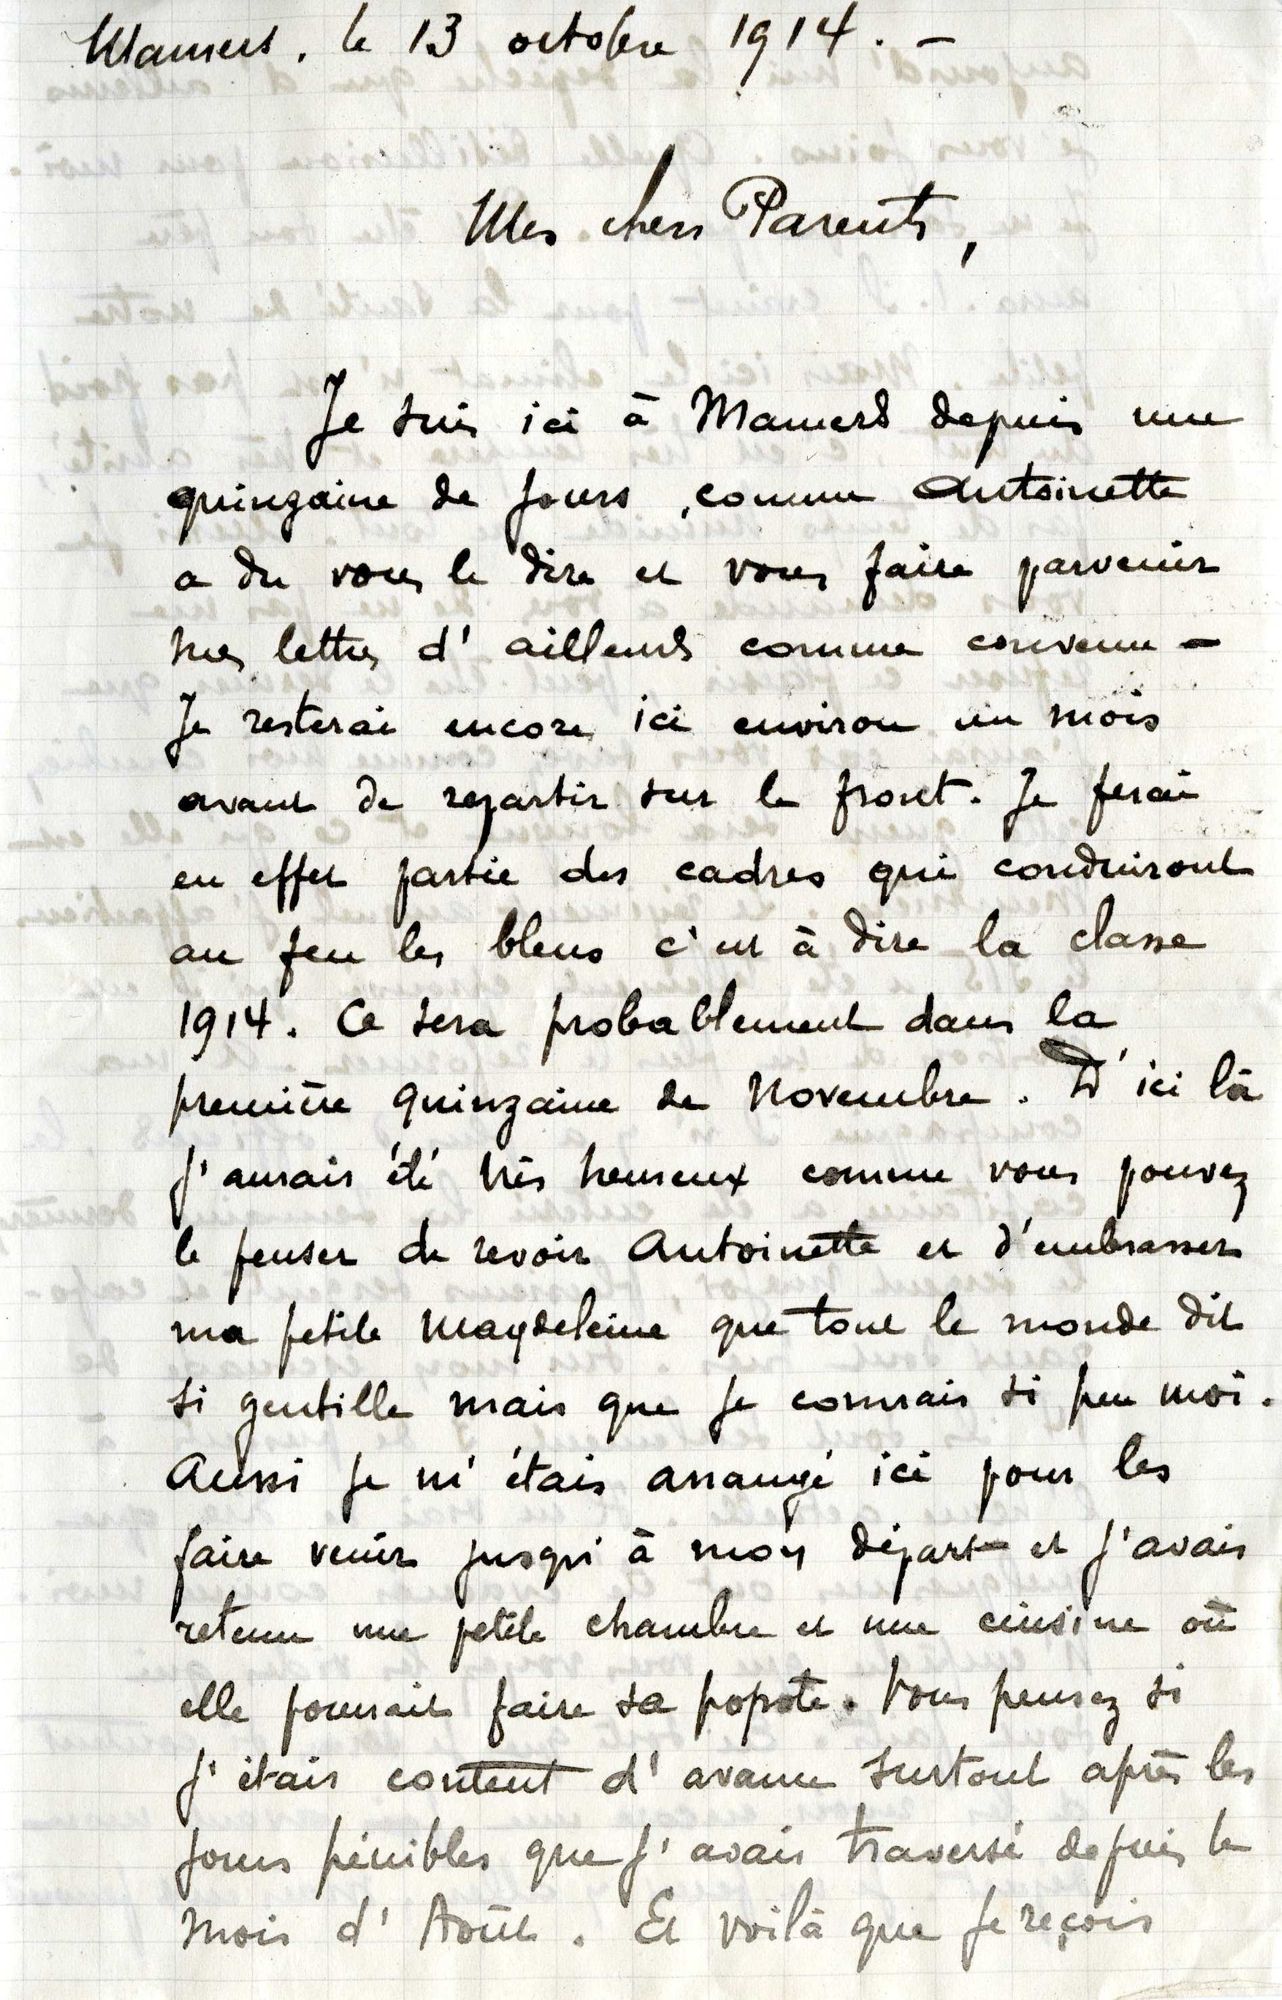 Mamers. le 13 octobre 1914. -
Mes chers Parents,
Je suis ici à Mamers depuis une
quinzaine de jours, comme Antoinette
a du vous le dire et vous faire parvenir
mes lettres d'ailleurs comme convenu -
Je resterai encore ici environ un mois
avant de repartir sur le front. Je ferai
en effet partie des cadres qui conduiront
au feu les bleus c'est à dire la classe
1914. Ce sera probablement dans la
première quinzaine de Novembre. D'ici là
j'aurais été très heureux comme vous pouvez
le penser de revoir Antoinette et d'embrasser
ma petite Magdeleine que tout le monde dit
si gentille mais que je connais si peu moi.
Aussi je m'étais arrangé ici pour les
faire venir jusqu'à mon départ et j'avais
retenu une petite chambre et une cuisine où
elle pourrait faire sa popote. Vous pensez si
j'étais content d'avance surtout après les
jours pénibles que j'avais traversé depuis le
mois d'Août. Et voilà que je reçois